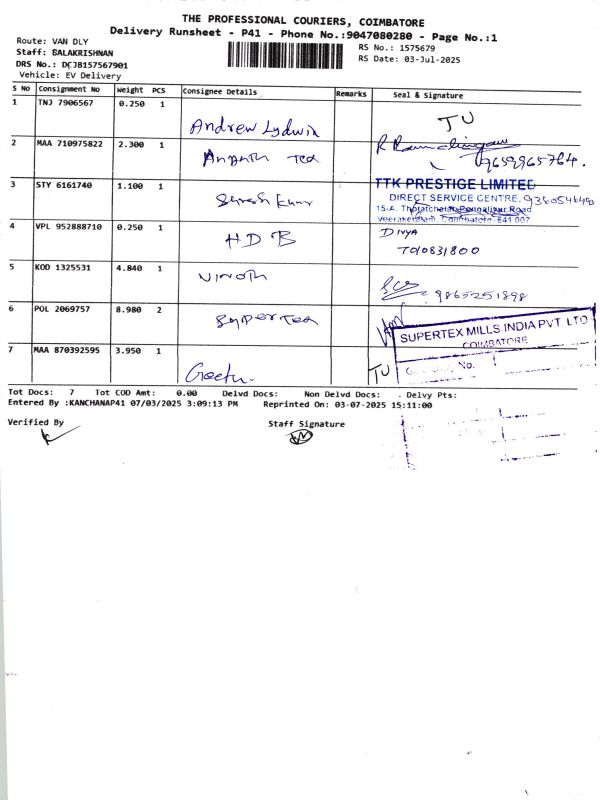 THE PROFESSIONAL COURIERS, COIMBATORE
Delivery Runsheet - P41 - Phone No.:9047080280 - Page No.:1
Route: VAN DLY
RS No.: 1575679
Staff: BALAKRISHNAN
RS Date: 03-Jul-2025
DRS No.: DCJB157567901
Vehicle: EV Delivery
S No Consignment No Weight PCS Consignee Details Remarks Seal & Signature
1 TNJ 7906567 0.250 1 Andrew Lydwin TU
2 MAA 710975822 2.300 1 Ananth Tea 9659965764.
3 STY 6161740 1.100 1 Suresh Kumar
TTK PRESTIGE LIMITED
DIRECT SERVICE CENTRE,
15-A, Road
Veerakeralam, Coimbatore-641 007
4 VPL 952888710 0.250 1 HDB DIVYA
5 KOD 1325531 4.840 1 Vinoth 9865251898
6 POL 2069757 8.980 2 Supertex
SUPERTEX MILLS INDIA PVT LTD
COIMBATORE
No.
7 MAA 870392595 3.950 1 Geetu. TU
Tot Docs: 7 Tot COD Amt: 0.00 Delvd Docs: Non Delvd Docs: - Delvy Pts:
Entered By :KANCHANAP41 07/03/2025 3:09:13 PM Reprinted On: 03-07-2025 15:11:00
Verified By Staff Signature